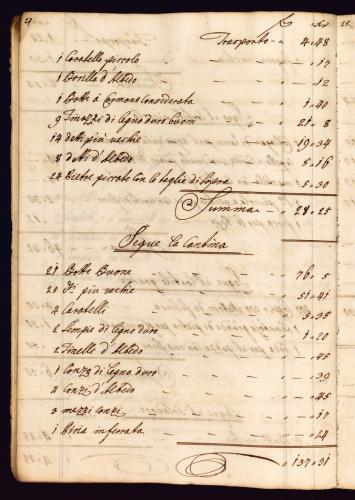 4
Trasporto - 4 . 48
1 Caratello piccolo - - - . 17
1 Botella d'Albedo - - - . 12
1 Botte à Cormons Considerata - 1 . 40
9 Tinazzi di legno duro buoni - 21 . 8
14 detti più vechie - - 19 . 34
8 detti d'Albedo - - 5 . 16
24 Pietre piccole con le taglie di sopra - 5 . 30
Summa - 28 . 25
Segue la Cantina
21 Botte Buone - - 76 . 5
28 più vechie - - 51 . 41
4 Caratelli - - 5 . 35
2 di legno duro - - 1 . 20
2 Tinelle d'Albedo - - . 45
1 Conzo di legno duro - - . 39
2 Conzi d'Albedo - - . 45
3 mezzi conzi - - . 17
1 Piria inferrata - - . 24
137 . 31
25